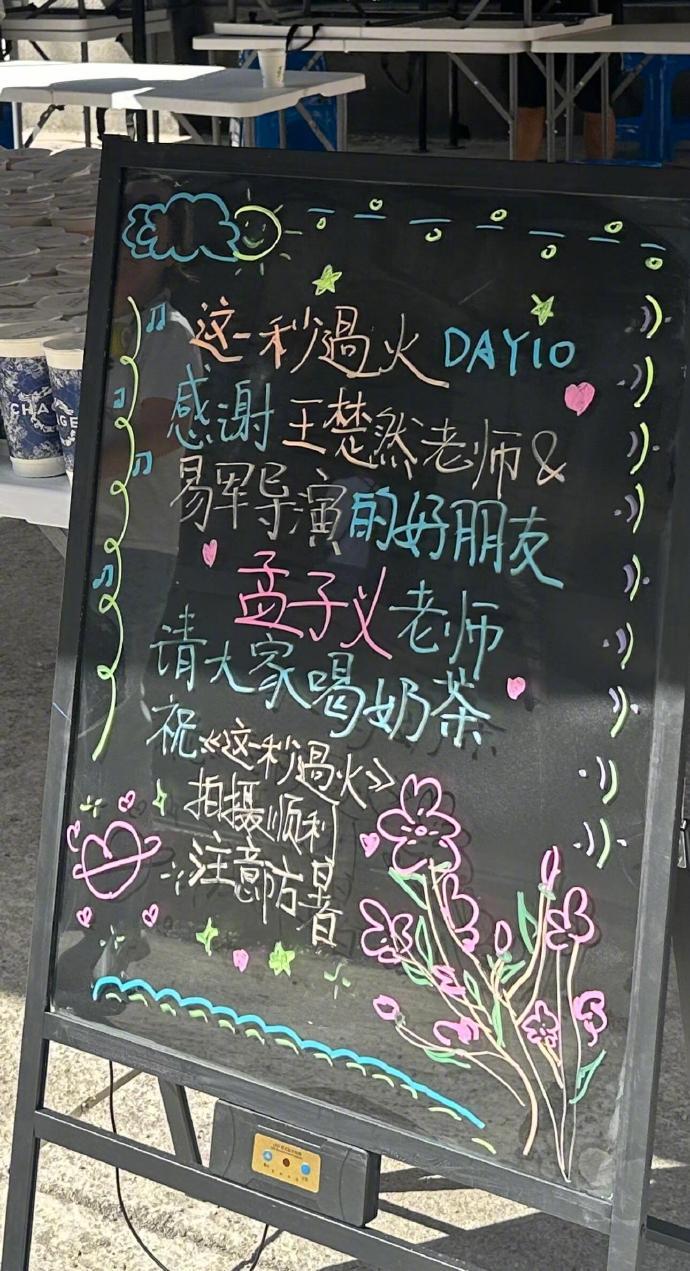 这一秒過火 DAY10
感谢王楚然老师&
易军导演的好朋友
孟子义老师
请大家喝奶茶
祝《这一秒過火》
拍摄顺利
注意防暑
CHA
AGE